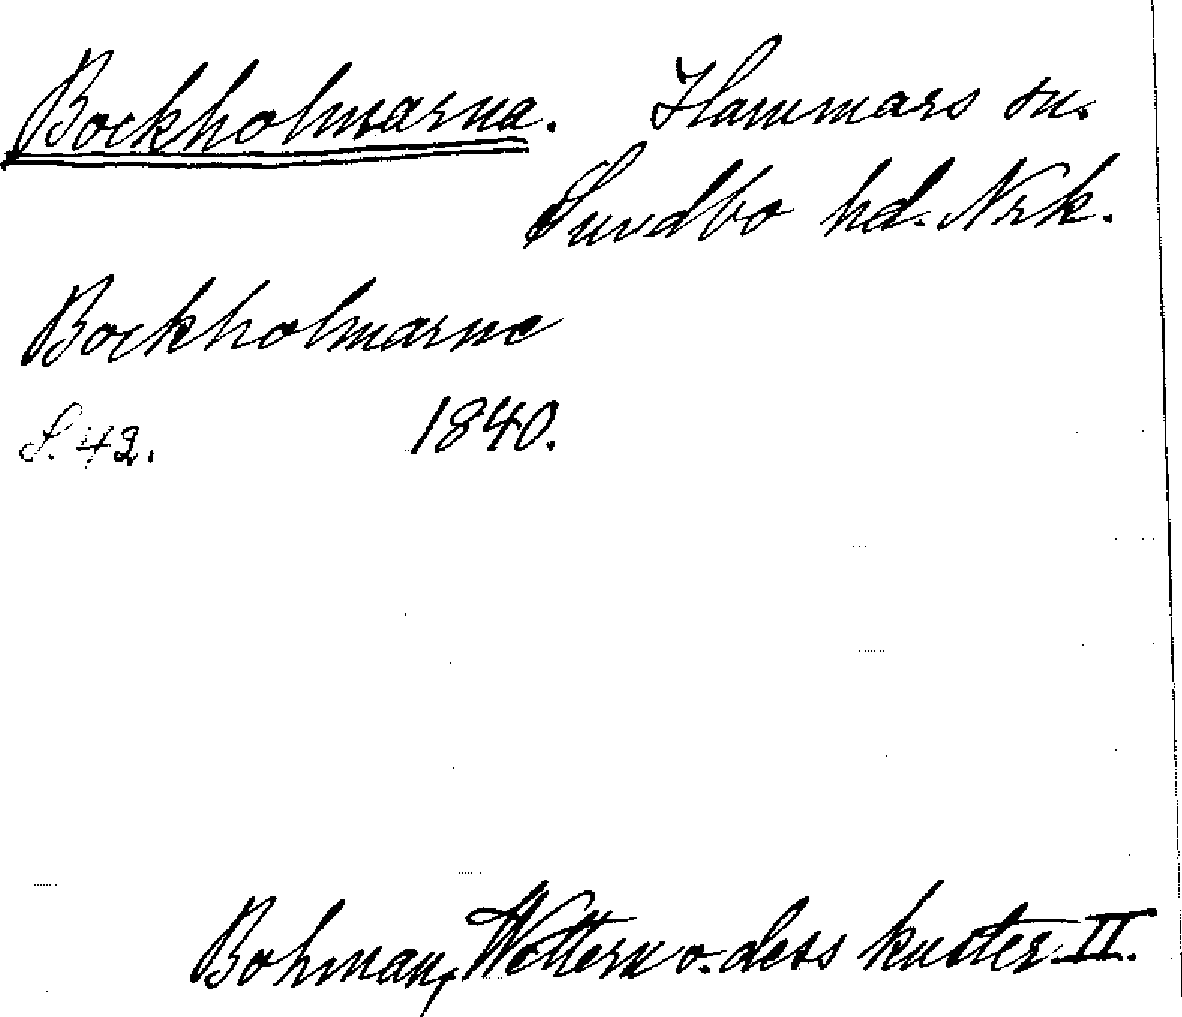 Bockholmarna. Hammars sn.
Sundbo hd. Nrk.
Bockholmarne
S. 42. 1840.
Bohman, Wettern o. dess kuster II.